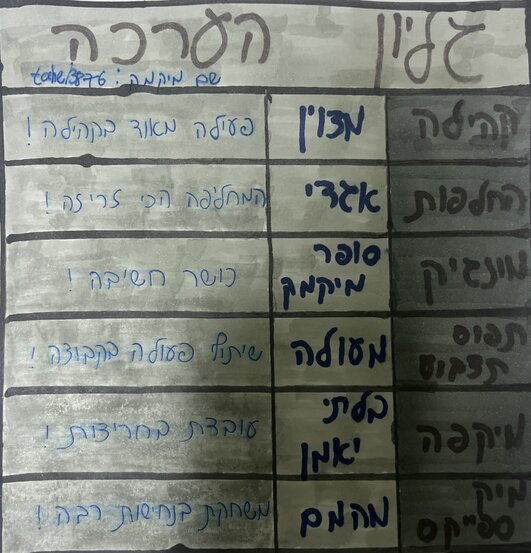 גליון הערכה
שם מיקמה: tahel3876
קהילה
מצוין
פעילה מאוד בקהילה!
החלפות
אגדי
המחליפה הכי זריזה!
מונגיק
סופר
מיקמק
כושר חשיבה!
תפוס
תצבוט
מעולה
שיתוף פעולה בקבוצה!
מיקפה
בלתי
יאמן
עובדת בחריצות!
מיק
ספייקס
מהמם
משחקת בנחישות רבה!